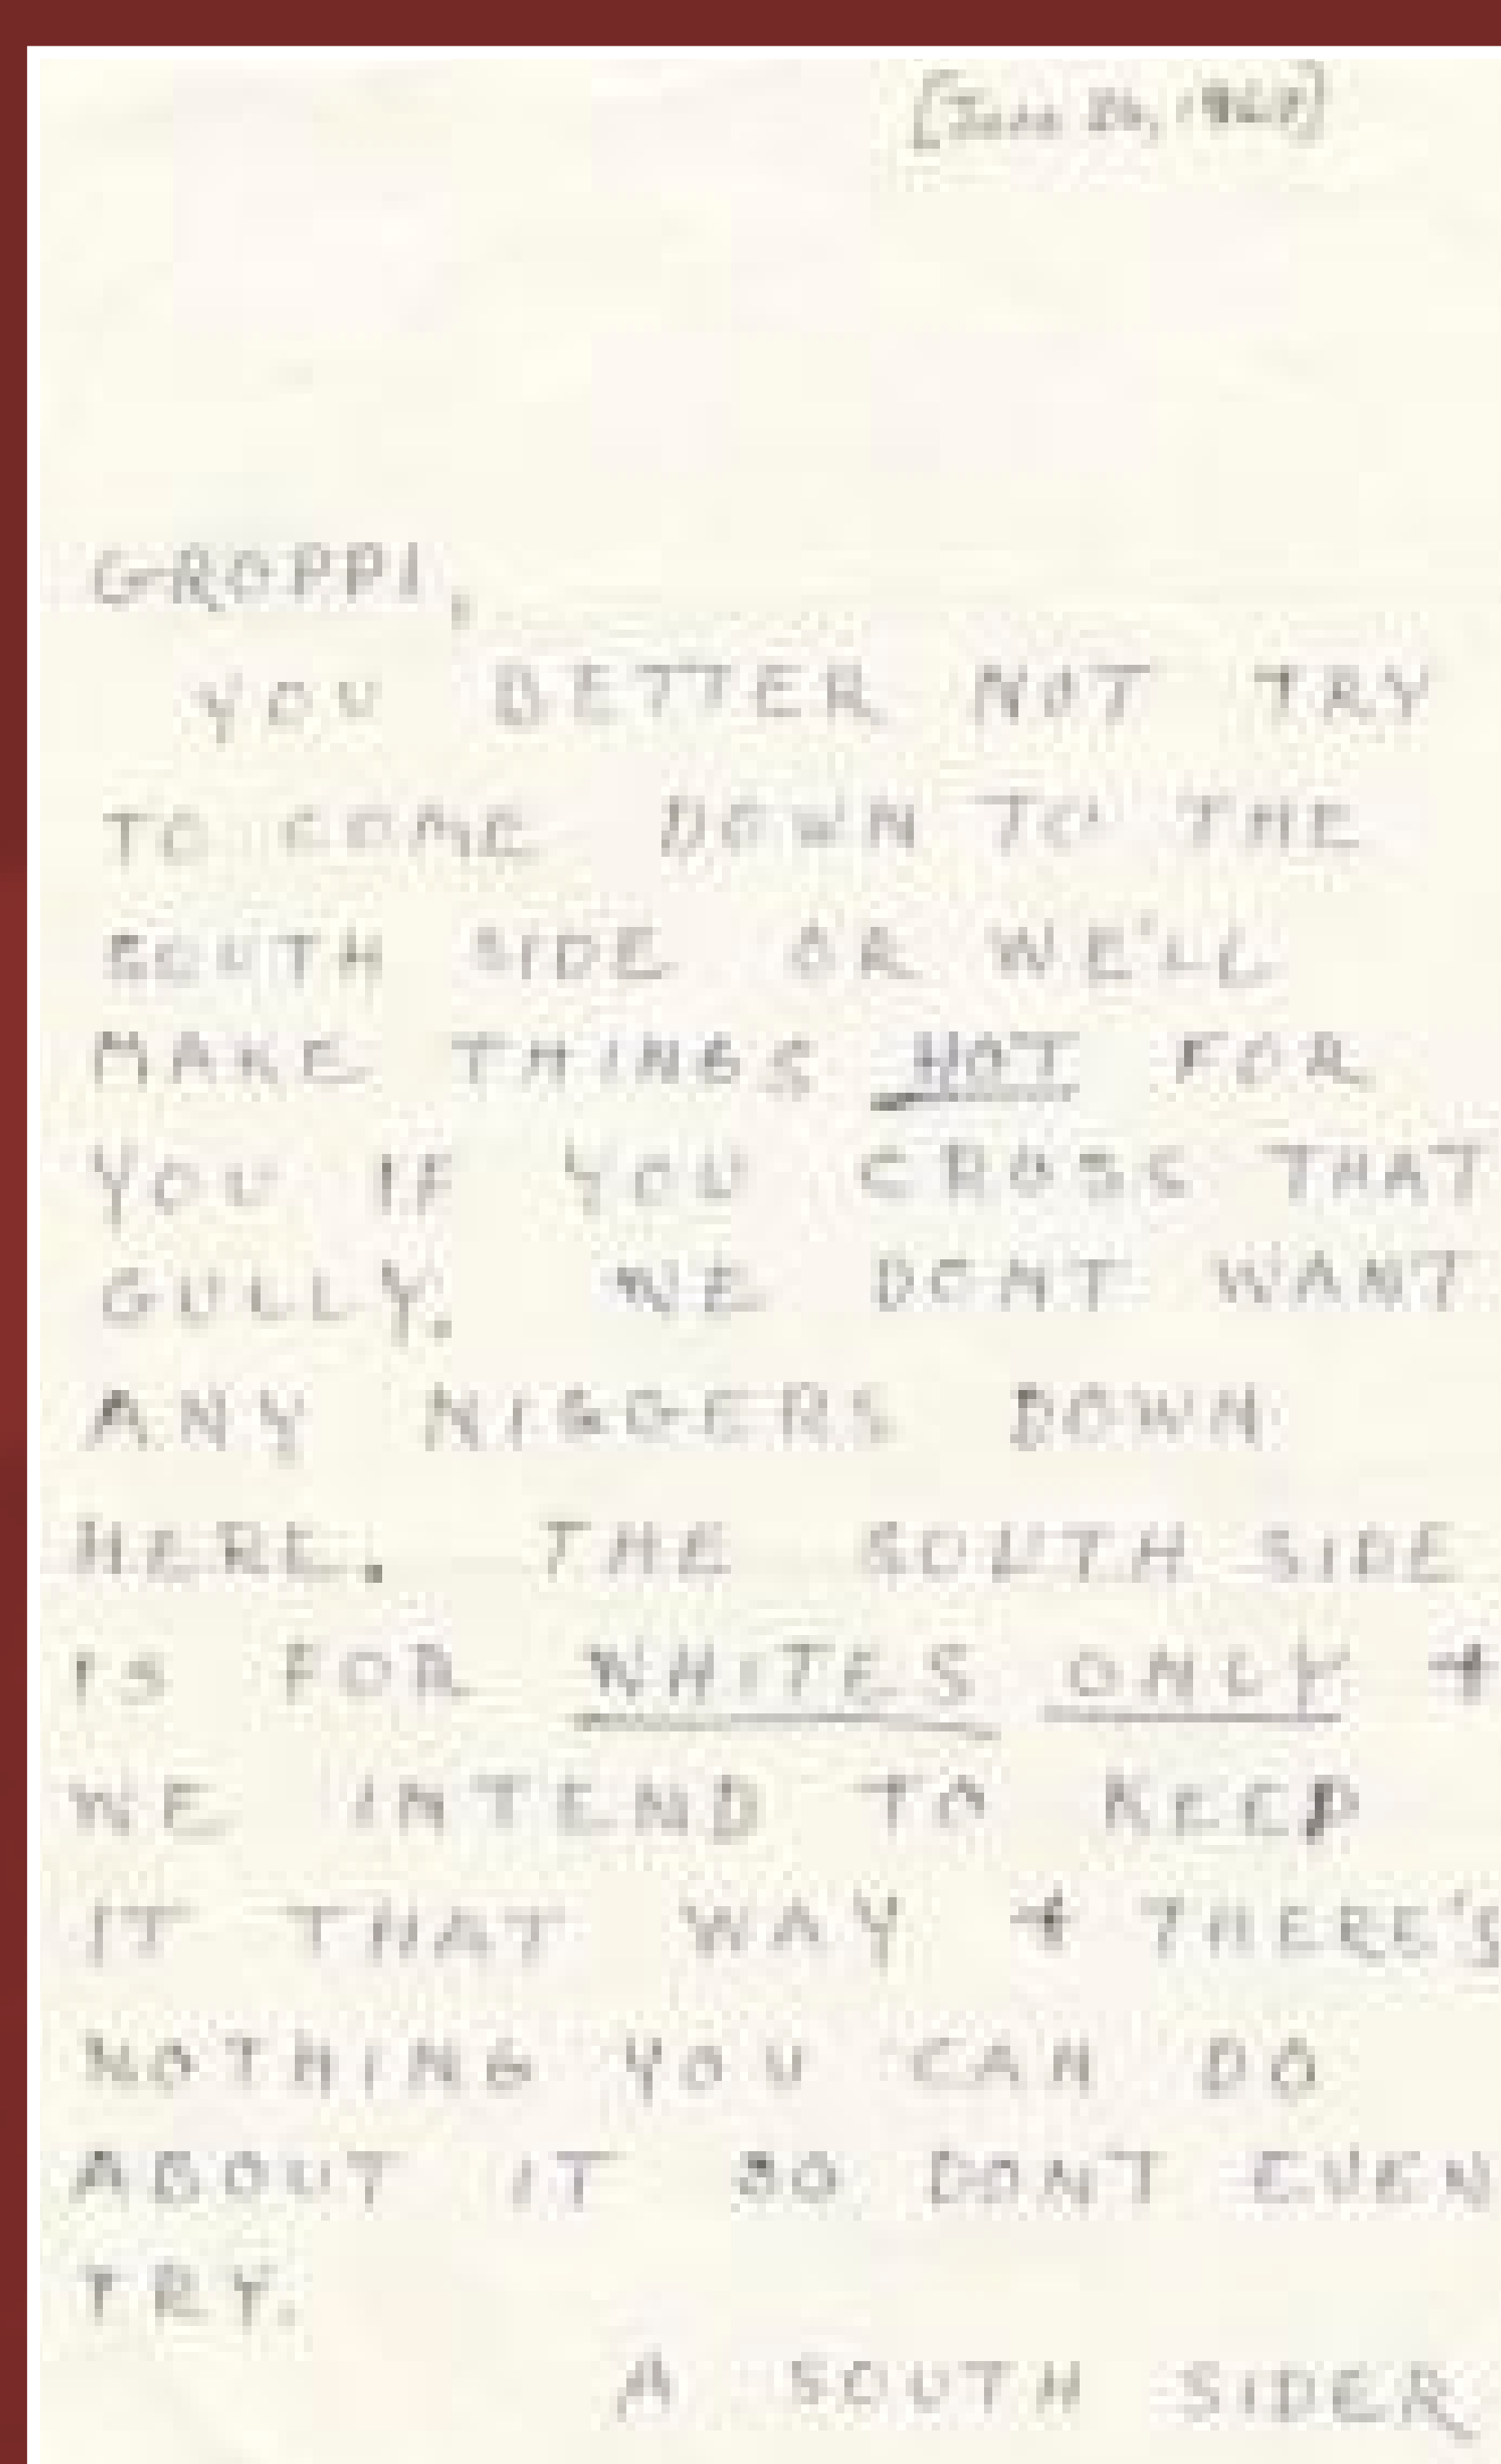 [June 26, 1968]
GROPPI,
YOU BETTER NOT TRY
TO COME DOWN TO THE
SOUTH SIDE OR WE'LL
MAKE THINGS HOT FOR
YOU IF YOU CROSS THAT
GULLY. WE DONT WANT
ANY NIGGERS DOWN
HERE. THE SOUTH SIDE
IS FOR WHITES ONLY +
WE INTEND TO KEEP
IT THAT WAY + THERE'S
NOTHING YOU CAN DO
ABOUT IT SO DONT EVEN
TRY.
A SOUTH SIDER